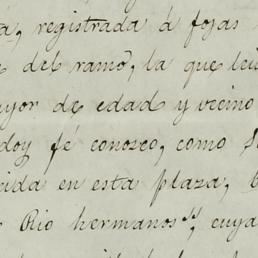 á, registrada á fojas
del ramo, la que
ayor de edad y vecino
doy fé conosco, como
cida en esta plaza,
Rio hermanos", cuya